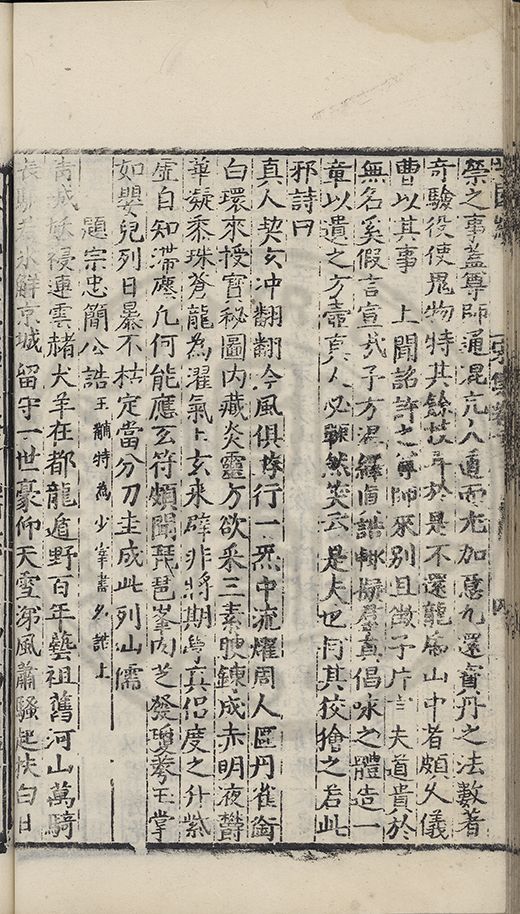 禜之事蓋尊師通混元人道而尤加意九還寶丹之法數著
奇驗役使鬼物特其餘技耳於是不還龍虎山中者頗久儀
曹以其事　上聞詔許之尊師來別且徵予片言夫道貴於
無名奚假言宣哉予方溫繹真誥輒擬羣真倡咏之體造一
章以遺之方壺真人必囅然笑云是夫也何其狡獪之若此
邪詩曰
真人契玄冲翩翩令風俱行一炁中流燿周人區丹雀銜
白環來授宝秘圖内藏炎靈方欲采三素腴錬成赤明夜欝
華凝黍珠蒼龍為濯氣上玄來辟非將期學真侣度之升紫
虚自知滯應凡何能應玄符頗聞琵琶峯肉芝發瓊蕤玉掌
如嬰兒列日暴不枯定當分刀圭成此列山儒
題宗忠簡公誥王黼特為少宰書名誥上
青城妖祲連雲赭犬羊在都龍遁野百年藝祖舊河山萬騎
長驅若氷觧京城留守一世豪仰天雪涕風蕭騷起挾白日